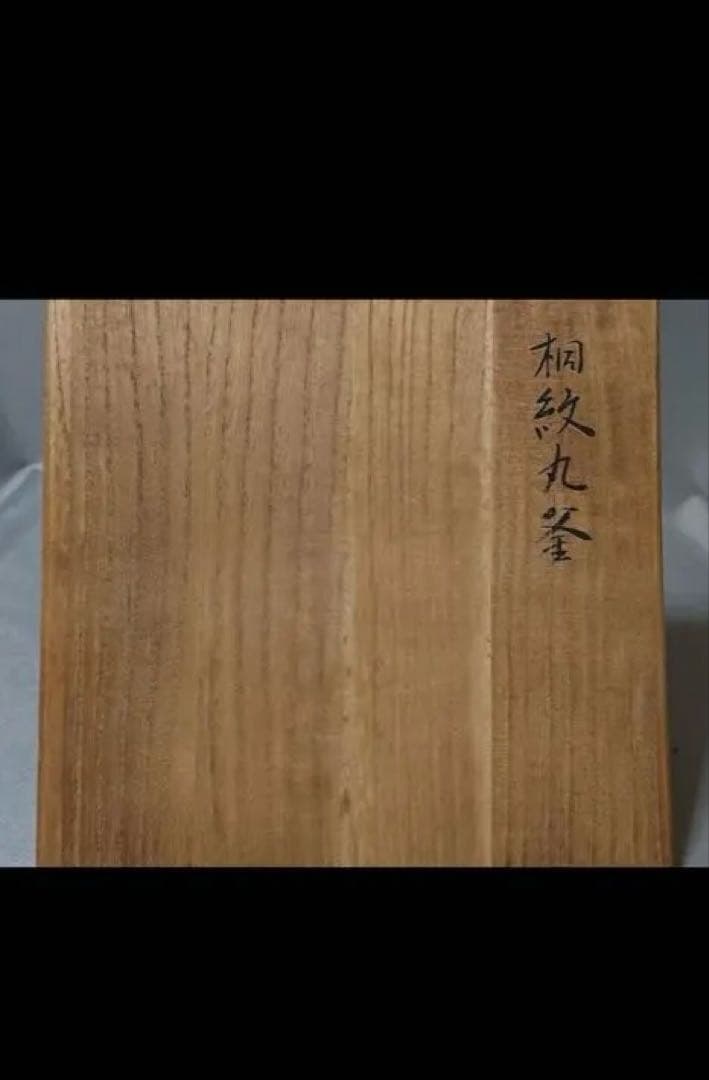 桐紋丸釜